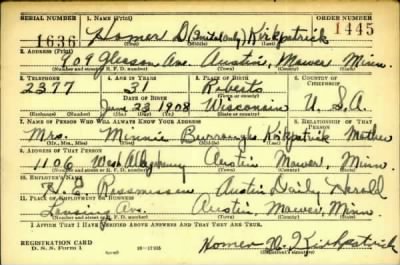 SERIAL NUMBER 1. NAME (Print) ORDER NUMBER
1636 Homer D (Initial only) Kirkpatrick 1445
(First) (Middle) (Last)
2. ADDRESS (Print)
909 Gleason Ave. Austin, Mower Minn.
(Number and street or R. F. D. number) (Town) (County) (State)
3. TELEPHONE 4. AGE IN YEARS 5. PLACE OF BIRTH 6. COUNTRY OF CITIZENSHIP
2377 31 Roberts
DATE OF BIRTH
June 23 1908 Wisconsin U. S. A.
(Mo.) (Day) (Yr.) (State or country)
7. NAME OF PERSON WHO WILL ALWAYS KNOW YOUR ADDRESS 8. RELATIONSHIP OF THAT PERSON
Mrs. Minnie Burroughs Kirkpatrick Mother
(Mr., Mrs., Miss) (First) (Middle) (Last)
9. ADDRESS OF THAT PERSON
1106 West Allegheny Austin Mower, Minn.
(Number and street or R. F. D. number) (Town) (County) (State)
10. EMPLOYER'S NAME
H. E. Rasmussen Austin Daily Herald
11. PLACE OF EMPLOYMENT OR BUSINESS
Lansing Ave. Austin, Mower, Minn
(Number and street or R. F. D. number) (Town) (County) (State)
I AFFIRM THAT I HAVE VERIFIED ABOVE ANSWERS AND THAT THEY ARE TRUE.
REGISTRATION CARD
D. S. S. Form 1 Homer D. Kirkpatrick
(Registrant's signature)